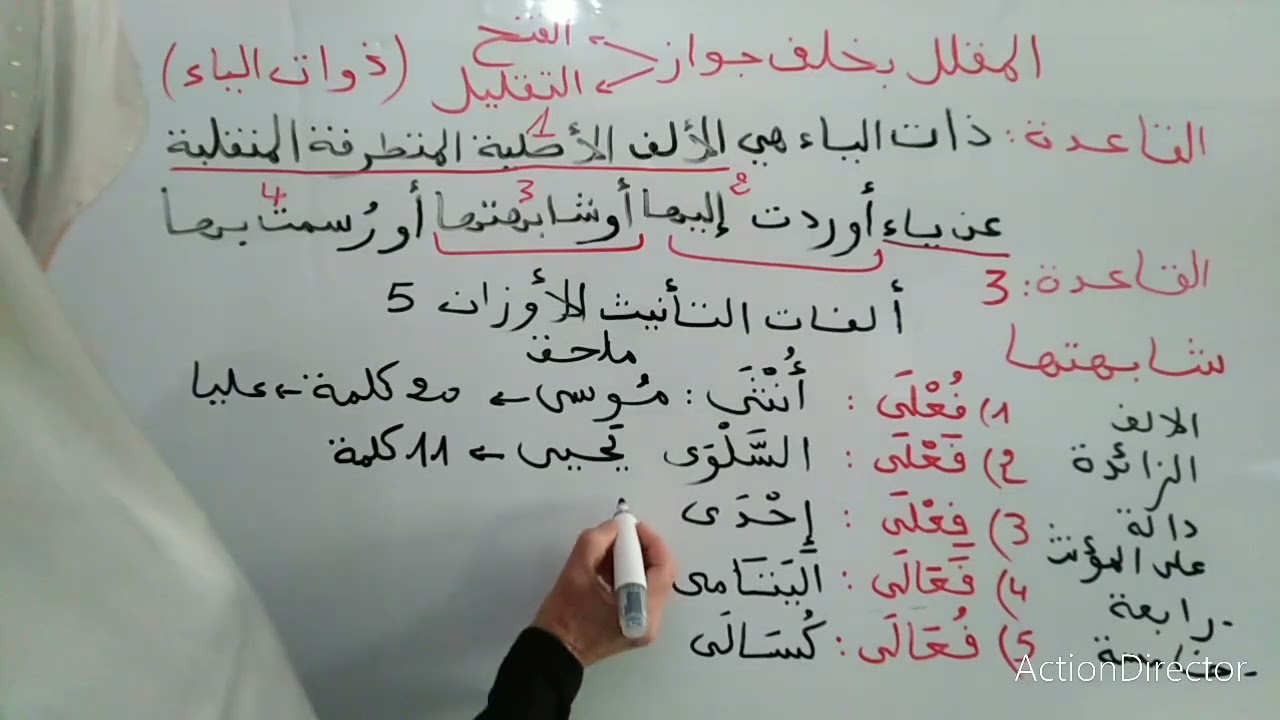 المقلل بخلف جواز الفتح (ذوات الياء)
التقليل
القاعدة: ذات الياء هي الألف الأصلية المتطرفة المنقلبة
1
عن ياء أو ردت إليها أو شابهتها أو رُسمت بها
2 3 4
القاعدة: 3
ألفات التأنيث للأوزان 5
شابهتها
ملحق
1) فُعْلَى : أُنْثَى : مُوسى ← 20 كلمة ← عليا
2) فَعْلَى : السَّلْوَى يَحْيى ← 11 كلمة
3) فِعْلَى : إِحْدَى
4) فَعَالَى : الْيَتَامى
5) فُعَالَى : كُسَالَى
الالف
الزائدة
دالة
على المؤنث
رابعة
خامسة
ActionDirector